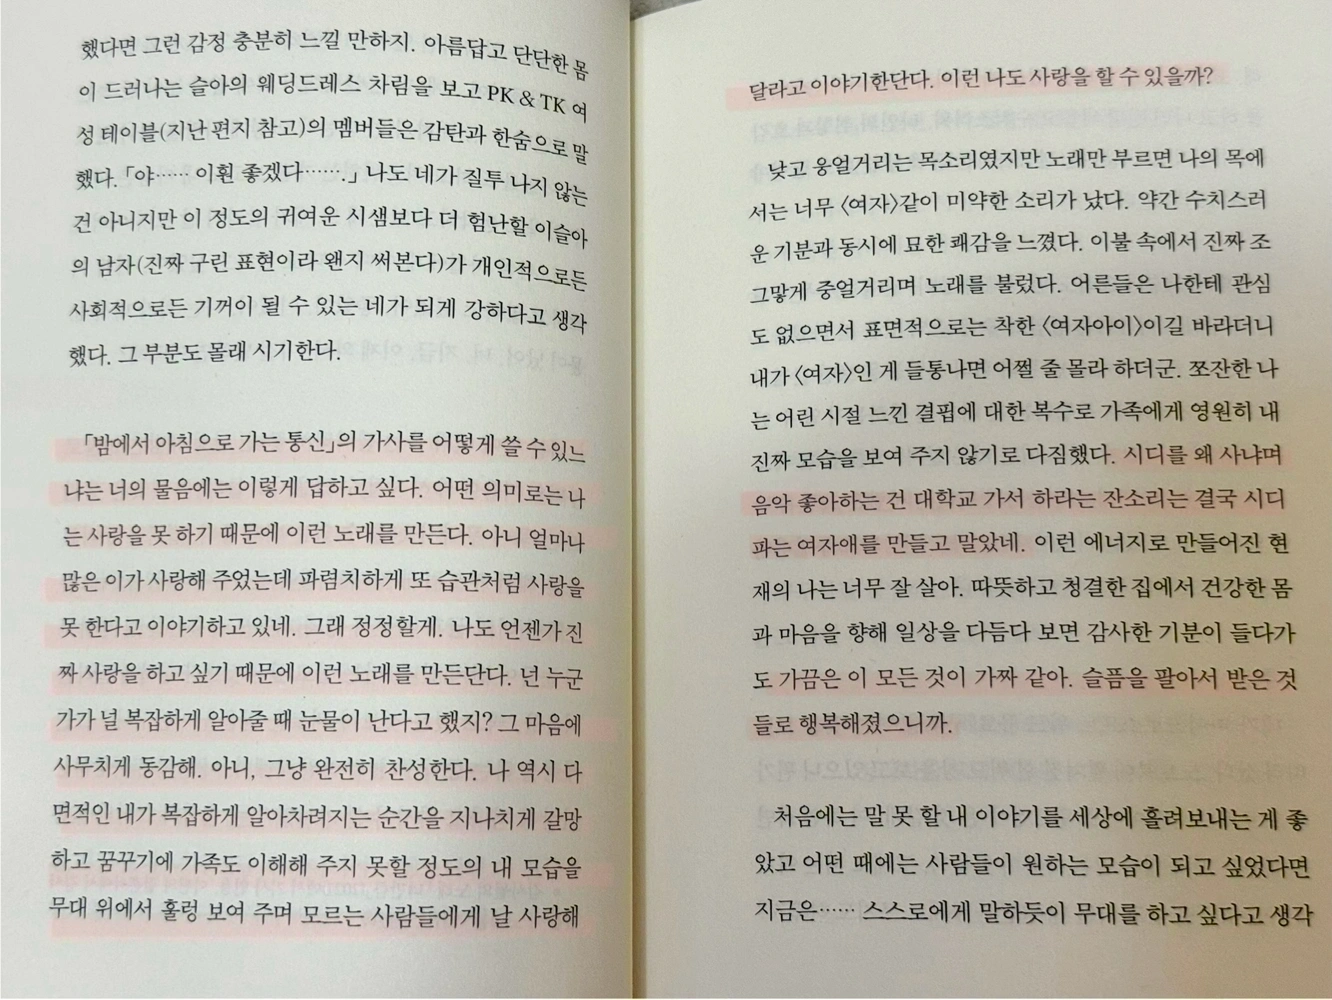 했다면 그런 감정 충분히 느낄 만하지. 아름답고 단단한 몸
이 드러나는 슬아의 웨딩드레스 차림을 보고 PK & TK 여
성 테이블(지난 편지 참고)의 멤버들은 감탄과 한숨으로 말
했다. 「야…… 이훤 좋겠다…….」 나도 네가 질투 나지 않는
건 아니지만 이 정도의 귀여운 시샘보다 더 험난할 이슬아
의 남자(진짜 구린 표현이라 왠지 써본다)가 개인적으로든
사회적으로든 기꺼이 될 수 있는 네가 되게 강하다고 생각
했다. 그 부분도 몰래 시기한다.
「밤에서 아침으로 가는 통신」의 가사를 어떻게 쓸 수 있느
냐는 너의 물음에는 이렇게 답하고 싶다. 어떤 의미로는 나
는 사랑을 못 하기 때문에 이런 노래를 만든다. 아니 얼마나
많은 이가 사랑해 주었는데 파렴치하게 또 습관처럼 사랑을
못 한다고 이야기하고 있네. 그래 정정할게. 나도 언젠가 진
짜 사랑을 하고 싶기 때문에 이런 노래를 만든단다. 넌 누군
가가 널 복잡하게 알아줄 때 눈물이 난다고 했지? 그 마음에
사무치게 동감해. 아니, 그냥 완전히 찬성한다. 나 역시 다
면적인 내가 복잡하게 알아차려지는 순간을 지나치게 갈망
하고 꿈꾸기에 가족도 이해해 주지 못할 정도의 내 모습을
무대 위에서 훌렁 보여 주며 모르는 사람들에게 날 사랑해
달라고 이야기한단다. 이런 나도 사랑을 할 수 있을까?
낮고 웅얼거리는 목소리였지만 노래만 부르면 나의 목에
서는 너무 〈여자〉같이 미약한 소리가 났다. 약간 수치스러
운 기분과 동시에 묘한 쾌감을 느꼈다. 이불 속에서 진짜 조
그맣게 중얼거리며 노래를 불렀다. 어른들은 나한테 관심
도 없으면서 표면적으로는 착한 〈여자아이〉이길 바라더니
내가 〈여자〉인 게 들통나면 어쩔 줄 몰라 하더군. 쪼잔한 나
는 어린 시절 느낀 결핍에 대한 복수로 가족에게 영원히 내
진짜 모습을 보여 주지 않기로 다짐했다. 시디를 왜 사냐며
음악 좋아하는 건 대학교 가서 하라는 잔소리는 결국 시디
파는 여자애를 만들고 말았네. 이런 에너지로 만들어진 현
재의 나는 너무 잘 살아. 따뜻하고 청결한 집에서 건강한 몸
과 마음을 향해 일상을 다듬다 보면 감사한 기분이 들다가
도 가끔은 이 모든 것이 가짜 같아. 슬픔을 팔아서 받은 것
들로 행복해졌으니까.
처음에는 말 못 할 내 이야기를 세상에 흘려보내는 게 좋
았고 어떤 때에는 사람들이 원하는 모습이 되고 싶었다면
지금은…… 스스로에게 말하듯이 무대를 하고 싶다고 생각